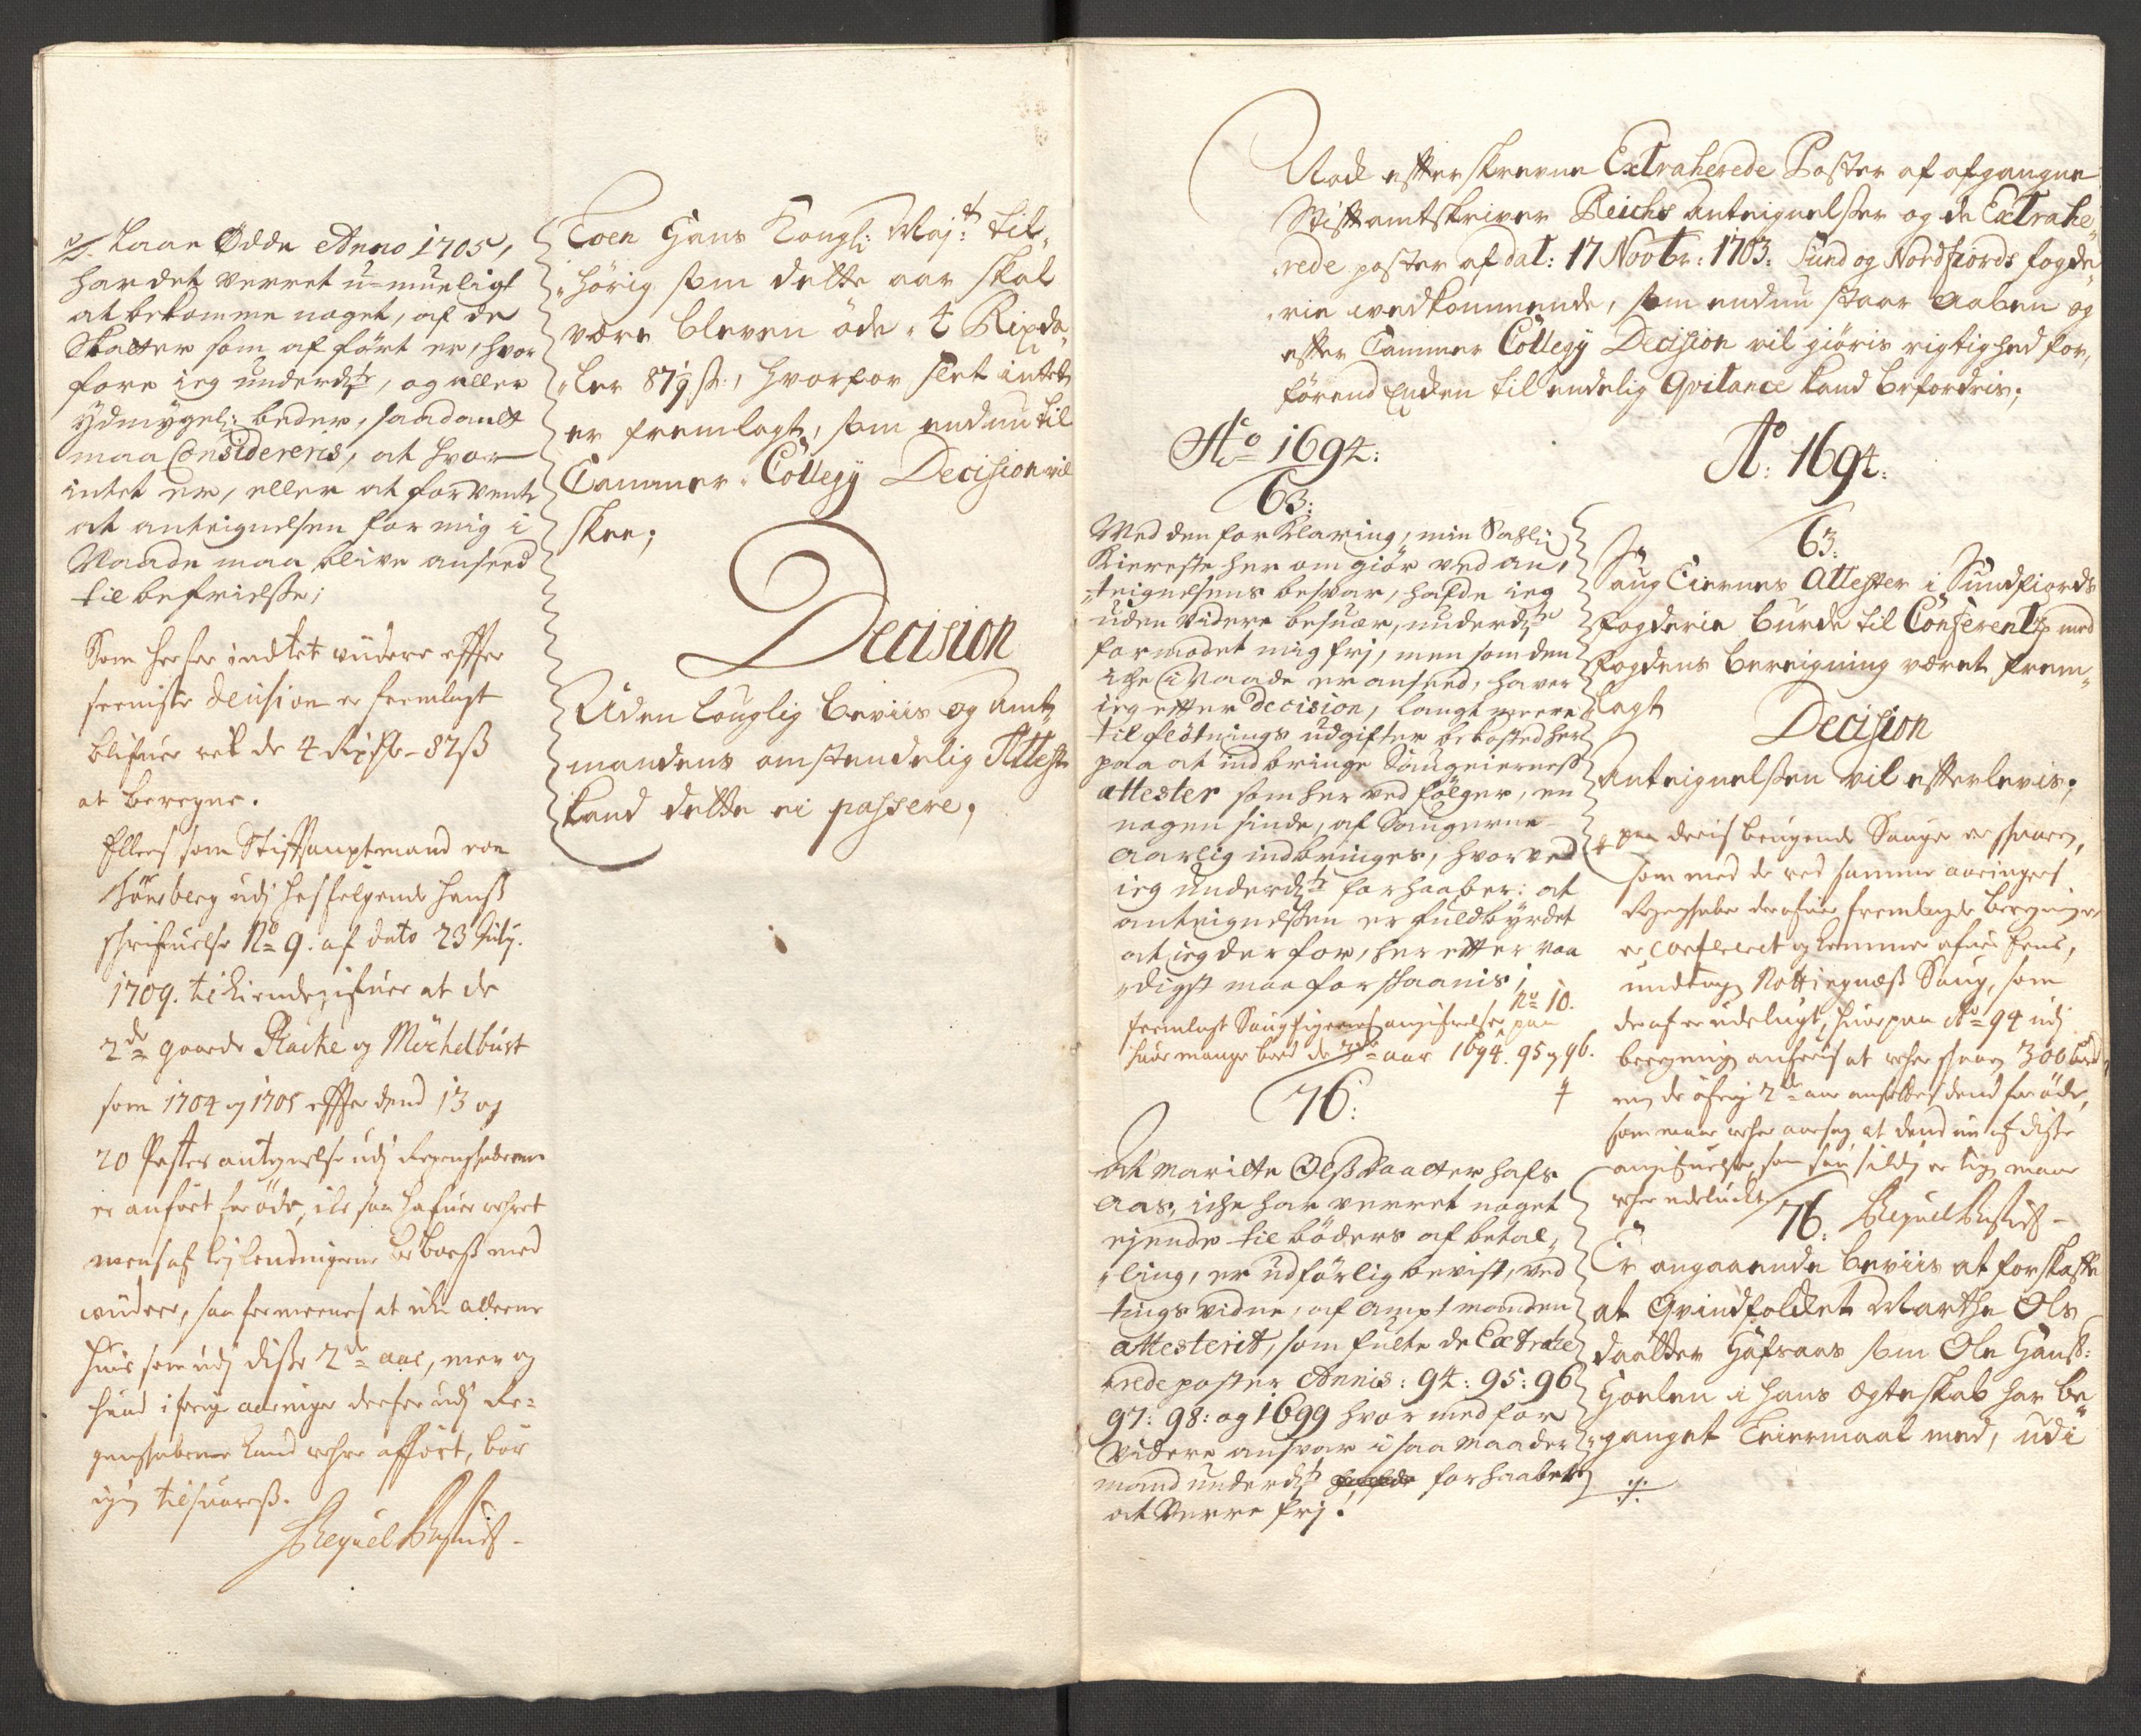 laae Ødde Anno 1705,
har det verret u-mueligt
at bekomme noget, af de
Skatter som af fört er, hvor
fore ieg underd:st, og aller
ydmygel: beder, saadant
maa Considereris, at hvor
intet er, eller at forvente
at anteignelsen for mig i
Naade maa blive anseed
til befrielse;
Som herfor indtet widere effter
seeniste decision er fremlagt
blifuer vel de 4 Rixdr - 87 ß
at beregne.
Ellers som Stiftsamptmand von
Tönsberg udj hosfölgende hans
schrifuelse No 9. af dato 23 July.
1709. tilkiendegifuer at de
2de gaarde Racke og Möchelbust
som 1704 og 1705 effter dend 13 og
20 Postes antegnelse udj Regenschaberne
er anfört for öde, icke saa hafuer wehret
mens af leylendingerne beboes med
widere, saa formeenes at icke alleene
huis som udj disse 2de aar, men og
huad i forige aaringer derfor udj Re=
genschaberne kand wehre afført, bör
igien tilsuares.
Eoen Hans Kongl: Maj:t til-
hörig som dette aar skal
være bleven öde - 4 Rixda-
ler 87½ ß:, hvorfor slet intet
er fremlagt, som endnu til
Cammer-Collegij Decision vil
skee;
Decision
Uden louglig beviis og Amt-
mandens omstendelig Attest
kand dette ei passere;
Nock efterskrevne Extraherede Poster af afgangne
Stiftamtskriver Reichs Anteignelser og de Extrahe-
rede poster af dat: 17 Novbr: 1703. Sund og Nordfiords fogde-
rie vedkommende, som endnu staar aaben og
efter Cammer Collegij Decision vil giöris rigtighed for,
förend Enden til endelig Qvitance kand befordris;
Ao 1694:
63:
Med den forklaring, min Sahl:
Kiereste her om giör ved an-
teignelsens besvar, hafde ieg
uden videre besuær, underd:ste
formodet mig frj, men som den
iche i Naade er anseed, haver
ieg efter decision, langt meere
til fløtnings udgifter bekosted her
paa at indbringe Saugeierness
attester som her ved fölger, en
nogen sinde, af Saugerne
aarlig indbringes, hvorved
ieg underd:st forhaaber: at
anteignelsen er fuldbyrdet
at ieg der for, her efter naa
digst maa forskaanis;
No 10.
fremlagt Saugeyernes angifuelse paa
huor mange bord de 3de aar 1694. 95 og 96.
76:
At Maritte Olsdaatter hafs
Aas, iche har verret noget
ejende til böders af betal-
ling, er udförlig bevist, ved
tings vidne, af Amptmanden
attesterit, som fulte de Extrahe
rede poster Annis: 94: 95: 96
97: 98: og 1699 hvormed for
videre ansvar i saa maader
mand underd:st forhaaber
at verre frj!
Ao: 1694:
63:
Saug Eiernes Attester i Sundfiords
fogderie burde til Conferentz med
fogdens bereigning været frem-
lagt
Decision
Anteignelsen vil efterlevis;
paa deris brugende Sauge er skaaren,
som med de ved samme aaringers
Regenschaber derofuer fremlagde beregninger
er confererit og kommer ofuer Eens,
undtagen Nottingnæs Saug, som
deraf er udelugt, huorpaa Ao 94 udj
beregningen anföris at wehre skaaren 300 bord,
men de öfrige 2de aar ansettes dend for öde,
som maae wehre aarsag at dend nu af disse
angifuelser som saa sildig er tagen maae
wehre udelugt
76:
Er angaaende beviis at forskaffe
at Qvindfolket Marthe Ols
daatter Hafsaas som Ole Hans:
Hoelen i hans Egteskab har be-
ganget Leiermaal med, udi